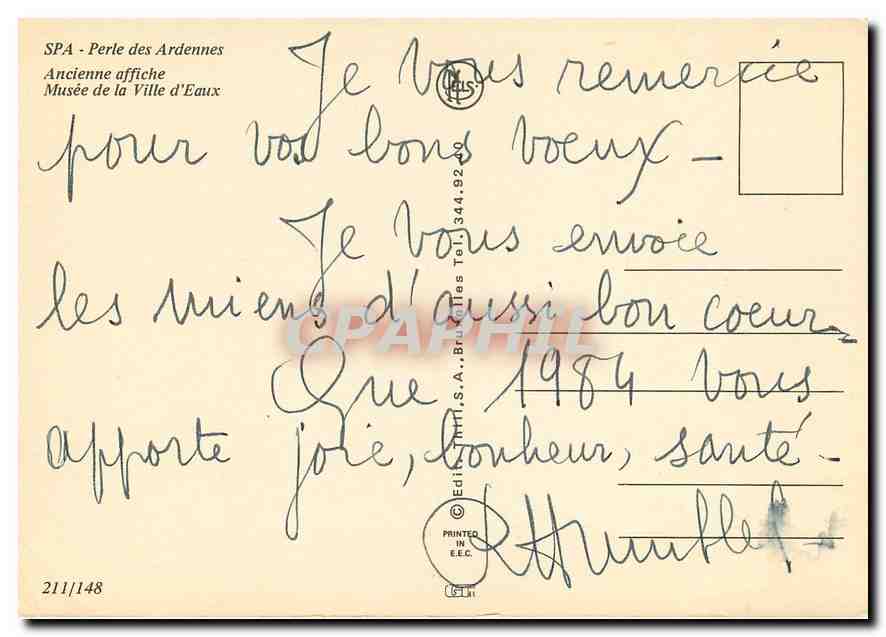 SPA - Perle des Ardennes
Ancienne affiche
Musée de la Ville d'Eaux
Je vous remercie
pour vos bons voeux -
Je vous envoie
les miens d'aussi bon coeur -
Que 1984 vous
apporte joie, bonheur, santé -
RHumblet
NELS
© Edit. Thill, S.A., Bruxelles Tel. 344.92.40
CPAPHIL
PRINTED
IN
E.E.C.
211/148